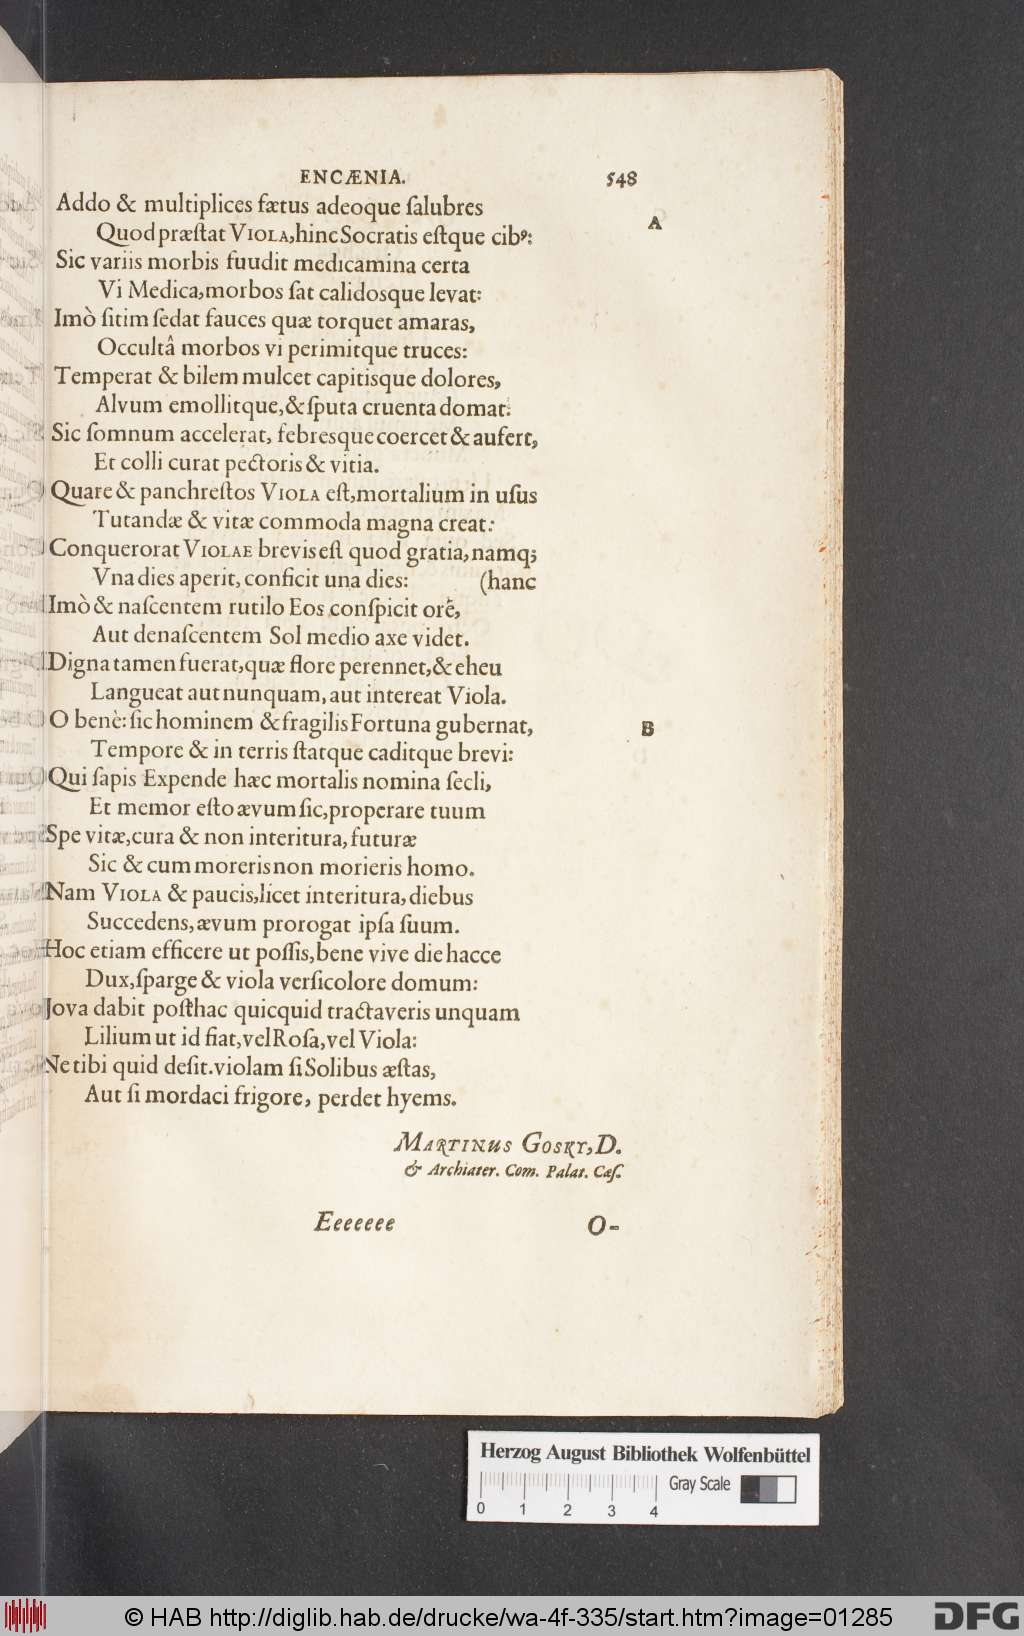 ENCÆNIA. 548
Addo & multiplices fœtus adeoque ſalubres
A
Quod præſtat VIOLA, hinc Socratis eſtque cibꝰ:
Sic variis morbis fuudit medicamina certa
Vi Medica, morbos ſat calidosque levat:
Imò ſitim ſedat fauces quæ torquet amaras,
Occultâ morbos vi perimitque truces:
Temperat & bilem mulcet capitisque dolores,
Alvum emollitque, & ſputa cruenta domat:
Sic ſomnum accelerat, febresque coercet & aufert,
Et colli curat pectoris & vitia.
Quare & panchreſtos VIOLA eſt, mortalium in uſus
Tutandæ & vitæ commoda magna creat:
Conquerorat VIOLAE brevis eſt quod gratia, namq;
Vna dies aperit, conficit una dies: (hanc
Imò & naſcentem rutilo Eos conſpicit orē,
Aut denaſcentem Sol medio axe videt.
Digna tamen fuerat, quæ flore perennet, & eheu
Langueat aut nunquam, aut intereat Viola.
O benè: ſic hominem & fragilis Fortuna gubernat,
B
Tempore & in terris ſtatque caditque brevi:
Qui ſapis Expende hæc mortalis nomina ſecli,
Et memor eſto ævum ſic, properare tuum
Spe vitæ, cura & non interitura, futuræ
Sic & cum moreris non morieris homo.
Nam VIOLA & paucis, licet interitura, diebus
Succedens, ævum prorogat ipſa ſuum.
Hoc etiam efficere ut poſſis, bene vive die hacce
Dux, ſparge & viola verſicolore domum:
Jova dabit poſthac quicquid tractaveris unquam
Lilium ut id fiat, vel Roſa, vel Viola:
Ne tibi quid deſit. violam ſi Solibus æſtas,
Aut ſi mordaci frigore, perdet hyems.
MARTINUS GOSKY, D.
& Archiater. Com. Palat. Cæſ.
Eeeeeee O-
Herzog August Bibliothek Wolfenbüttel
Gray Scale
0 1 2 3 4
© HAB http://diglib.hab.de/drucke/wa-4f-335/start.htm?image=01285 DFG